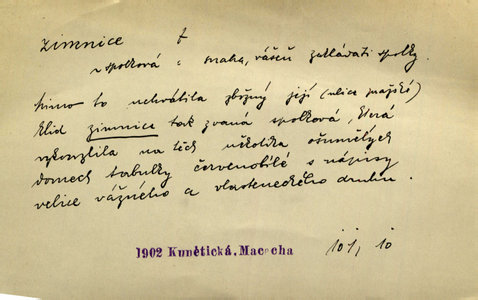 zimnice f
~ spolková = snaha, vášeň zakládati spolky.
Mimo to uchvátila zbožný její (ulice pražské)
klid zimnice tak zvaná spolková, která
vykouzlila na těch několika ošumělých
domech tabulky červenobílé s nápisy
velice vážného a vlasteneckého druhu.
1902 Kunětická, Macecha
101, 10